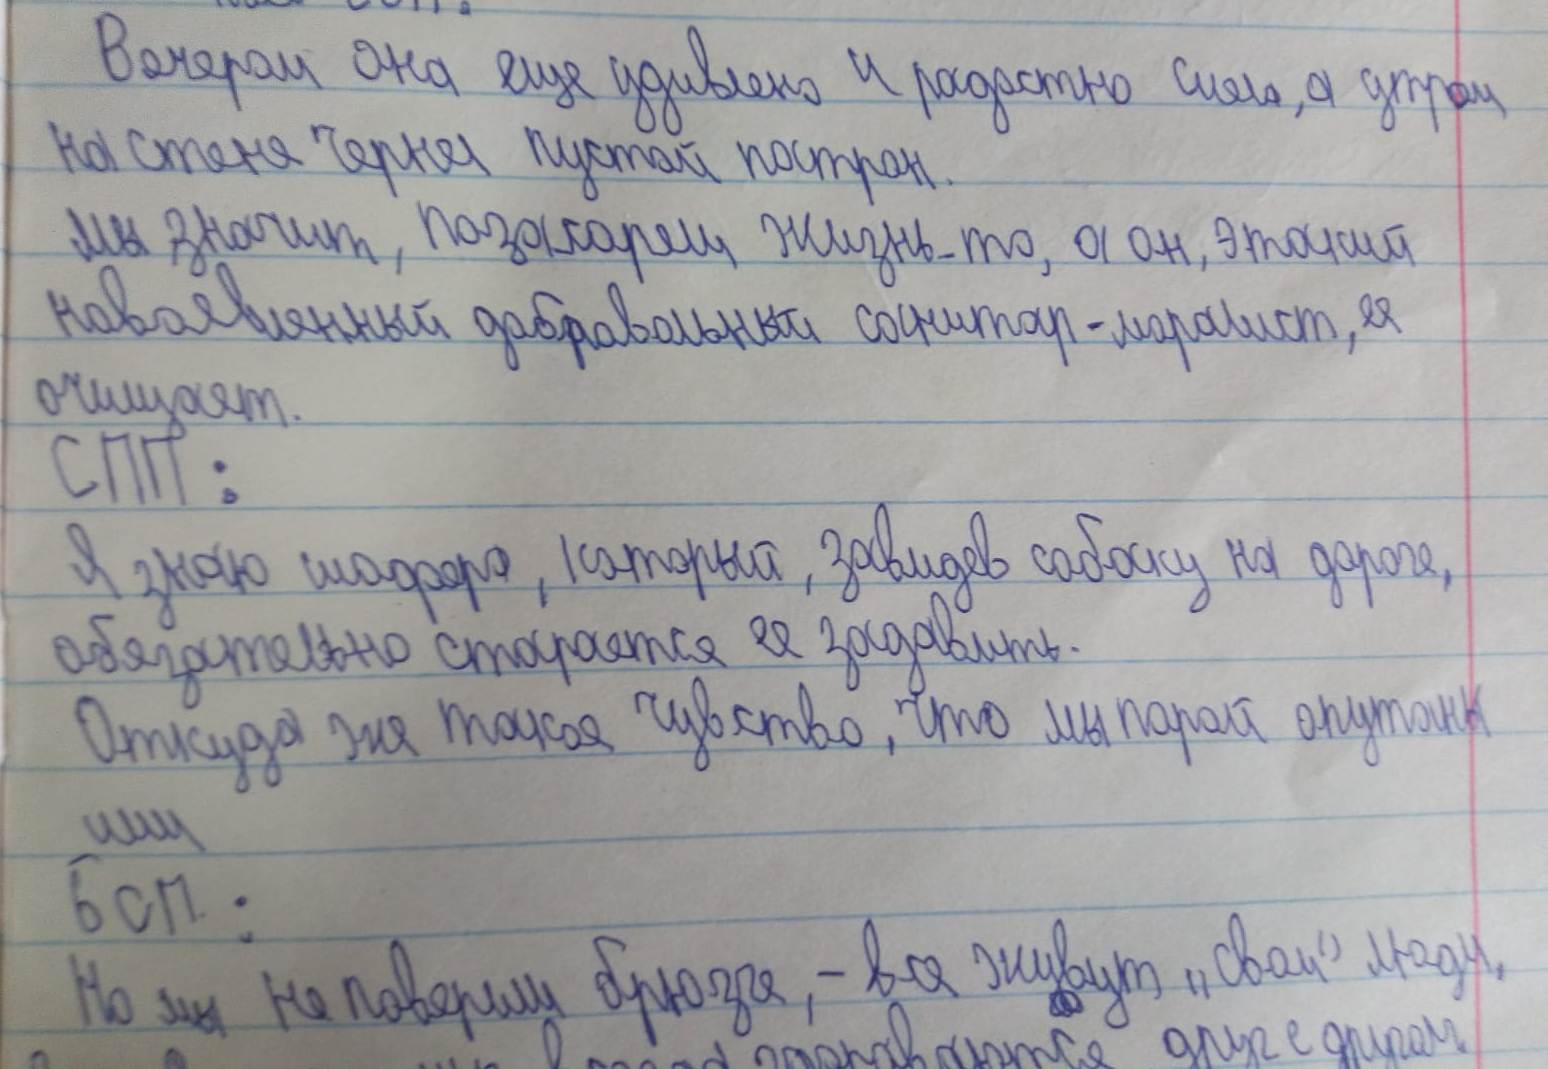 Вечером она еще удивлено и радостно сиял, а утром
на стене чернел пустой патрон.
мы значит, позасарем жизнь-то, а он, этакий
новоявленный добровольный санитар-моралист, ее
очищает.
СПП:
Я знаю шофера, который, завидев собаку на дороге,
обязательно старается ее задавить.
Откуда же такое чувство, что мы порой опутаны
ими
БСП:
Но мы не поверим брюзге, - все живут „свои" люди,
друг с другом